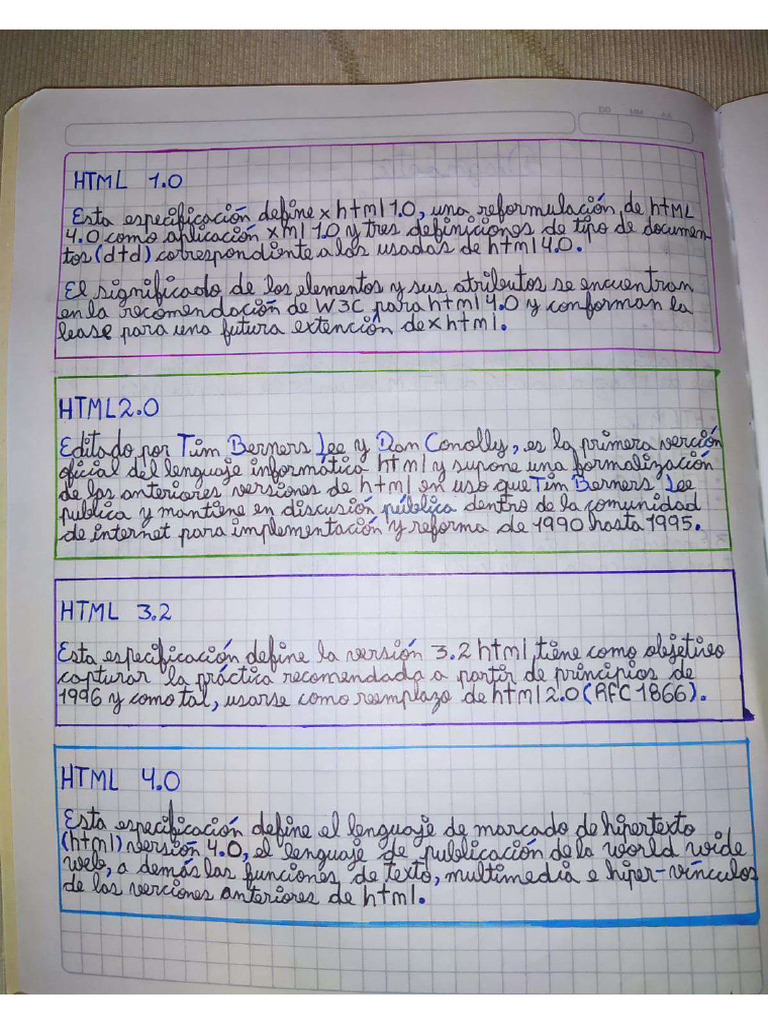 DD MM AA
HTML 1.0
Esta especificación define xhtml 1.0, una reformulación de htML
4.0 como aplicación xml 1.0 y tres definiciones de tipo de documen-
tos (dtd) correspondiente a las usadas de html 4.0.
El significado de los elementos y sus atributos se encuentran
en la recomendación de W3C para html 4.0 y conforman la
base para una futura extención de xhtml.
HTML 2.0
Editado por Tim Berners Lee y Dan Conolly, es la primera verción
oficial del lenguaje informática html y supone una formalización
de las anteriores versiones de html en uso que Tim Berners Lee
publica y mantiene en discusión pública dentro de la comunidad
de internet para implementación y reforma de 1990 hasta 1995.
HTML 3.2
Esta especificación define la versión 3.2 html tiene como objetivo
capturar la práctica recomendada a partir de principios de
1996 y como tal, usarse como reemplazo de html 2.0 (RFC 1866).
HTML 4.0
Esta especificación define el lenguaje de marcado de hipertexto
(html) versión 4.0, el lenguaje de publicación de la world wide
web, a demás las funciones de texto, multimedia e hiper-vínculos
de las verciones anteriores de html.